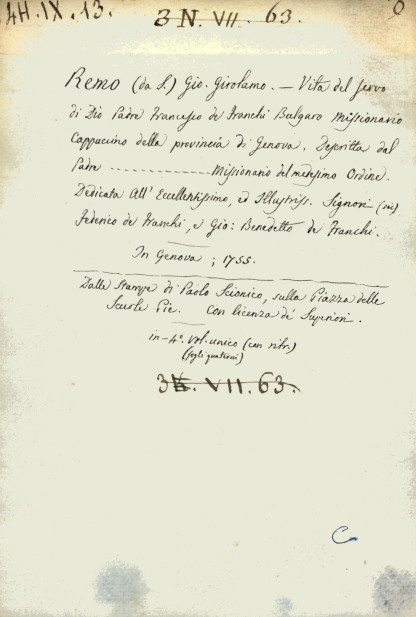 4H. IX. 13.
3 N. VII. 63.
Remo (da S.) Gio. Girolamo. — Vita del servo
di Dio Padre Francesco de Franchi Bulgaro Missionario
Cappuccino della provincia di Genova. Descritta dal
Padre ------------ Missionario del medesimo Ordine.
Dedicata All' Eccellentissimo, ed Illustriss. Signori (sic)
Federico de Franchi, e Gio: Benedetto de Franchi.
In Genova ; 1755.
Dalle Stampe di Paolo Scionico, sulla Piazza delle
Scuole Pie. Con licenza de' Superiori.
in-4º. Vol. unico (con ritr.)
(fogli quaterni)
VII. 63.
C